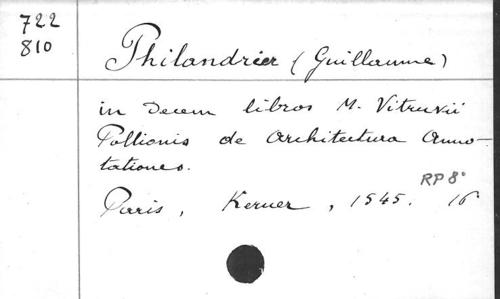 722
810
Philandrier (Guillaume)
in Decem libros M. Vitruvii
Pollionis de Architectura Anno-
tationes.
RP 8°
Paris, Kerver, 1545. 16